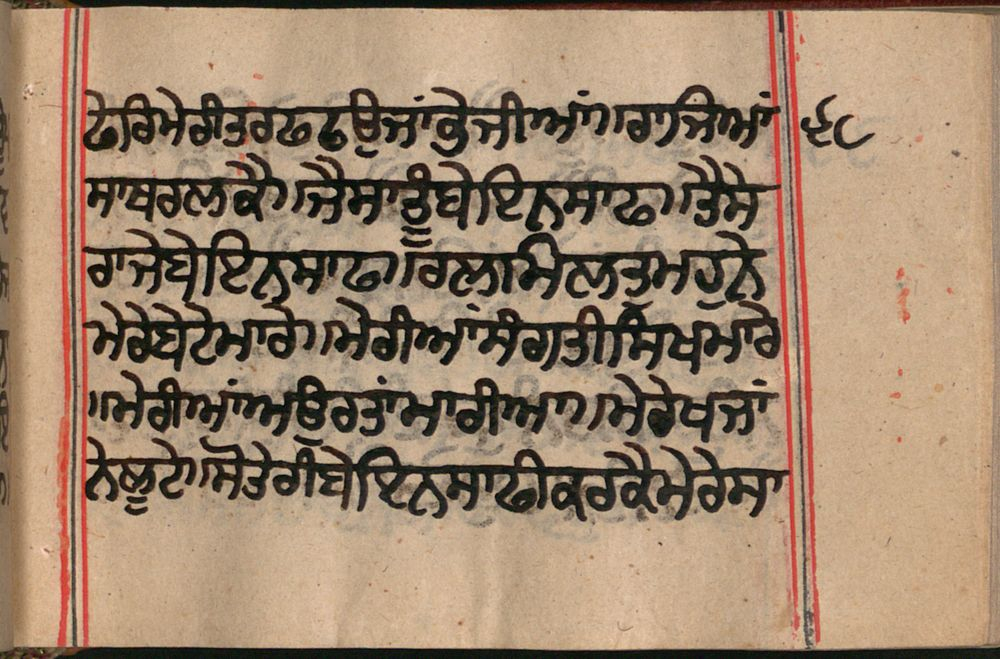 ਫੇਰਿ ਮੇਰੀ ਤਰਫ ਫਉਜਾਂ ਭੇਜੀਆਂ॥ ਰਾਜਿਆਂ ੬੮
ਸਾਥ ਰਲਕੈ॥ ਜੈਸਾ ਤੂੰ ਬੇਇਨਸਾਫ॥ ਤੈਸੇ
ਰਾਜੇ ਬੇਇਨਸਾਫ॥ ਰਲਾਮਿਲ ਤੁਮਹੁਨੇ
ਮੇਰੇ ਬੇਟੇ ਮਾਰੇ॥ ਮੇਰੀਆਂ ਸੰਗਤੀ ਸਿਖ ਮਾਰੇ
॥ਮੇਰੀਆਂ ਅਉਰਤਾਂ ਮਾਰੀਆ॥ ਮੇਰੇ ਖਜਾਂ
ਨੇ ਲੂਟੇ॥ ਸੋ ਤੇਰੀ ਬੇਇਨਸਾਫੀ ਕਰਕੈ ਮੇਰੇ ਸਾ